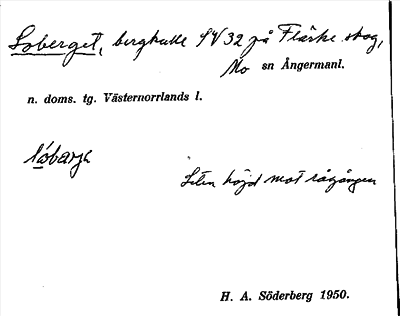 Loberget, bergkulle SV 32 på Flärke skog,
Mo sn Ångermanl.
n. doms. tg. Västernorrlands l.
lóbarjə
Liten höjd mot rågången
H. A. Söderberg 1950.